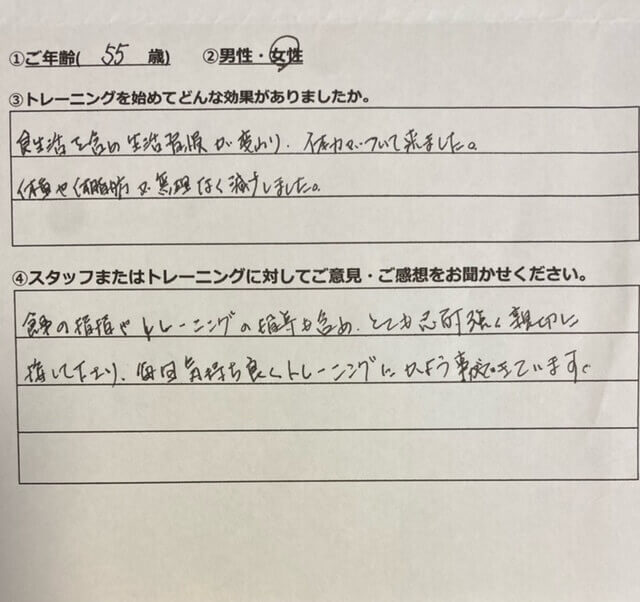 ①ご年齢( 55 歳) ②男性・女性
③トレーニングを始めてどんな効果がありましたか。
食生活を含め生活習慣が変わり、体力がついて来ました。
体重や体脂肪が無理なく減少しました。
④スタッフまたはトレーニングに対してご意見・ご感想をお聞かせください。
食事の指指やトレーニングの指導も含め、とても忍耐強く親切に
指して下さり、毎回気持ち良くトレーニングにかよう事ができています。